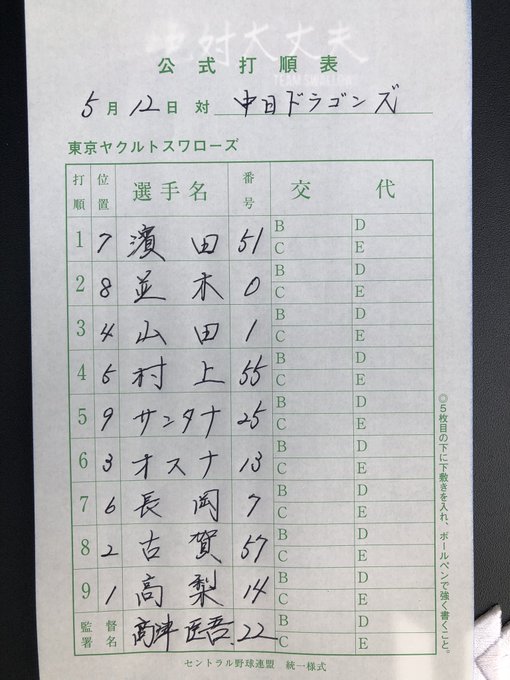 絶対大丈夫
公式打順表
5月12日 対 中日ドラゴンズ
東京ヤクルトスワローズ
打順 位置 選手名 番号 交代
1 7 濱田 51 B D C E
2 8 並木 0 B D C E
3 4 山田 1 B D C E
4 5 村上 55 B D C E
5 9 サンタナ 25 B D C E
6 3 オスナ 13 B D C E
7 6 長岡 7 B D C E
8 2 古賀 57 B D C E
9 1 高梨 14 B D C E
監督署名 高津臣吾 22 B D C E
◎5枚目の下に下敷きを入れ、ボールペンで強く書くこと。
セントラル野球連盟 統一様式